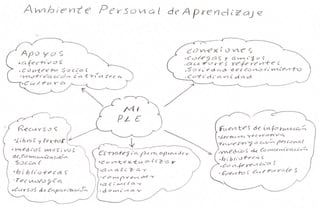 Ambiente Personal de Aprendizaje
Apoyos
• afectivos
• contexto social
• motivación intrínseca
• Cultura
Conexiones
• colegas y amigos
• autores referentes
• sociedad del conocimiento
• cotidianidad
MI
PLE
Recursos
• libros y textos
• medios
de comunicación
social
• bibliotecas
• Tecnología
• cursos de capacitación
Estrategia para aprender
• contextualizar
• analizar
• comprender
• asimilar
• dominar
Fuentes de información
investigación personal
medios de comunicación
• bibliotecas
• conferencias
• Eventos culturales